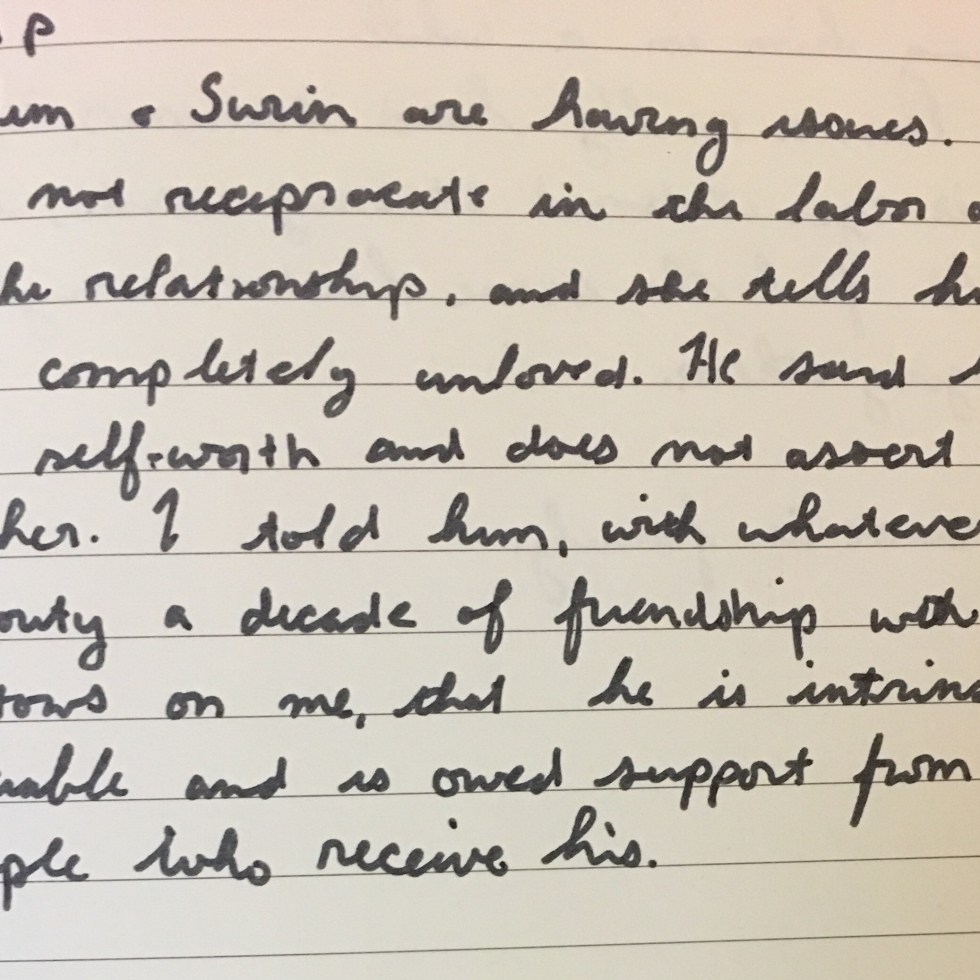 P
& Surin are having issues.
not reciprocate in the labor
relationship, and she tells
completely unloved. He said
self-worth and does not assert
her. I told him, with whateve
a decade of friendship with
tows on me, that he is intrins
uable and is owed support from
ple who receive his.